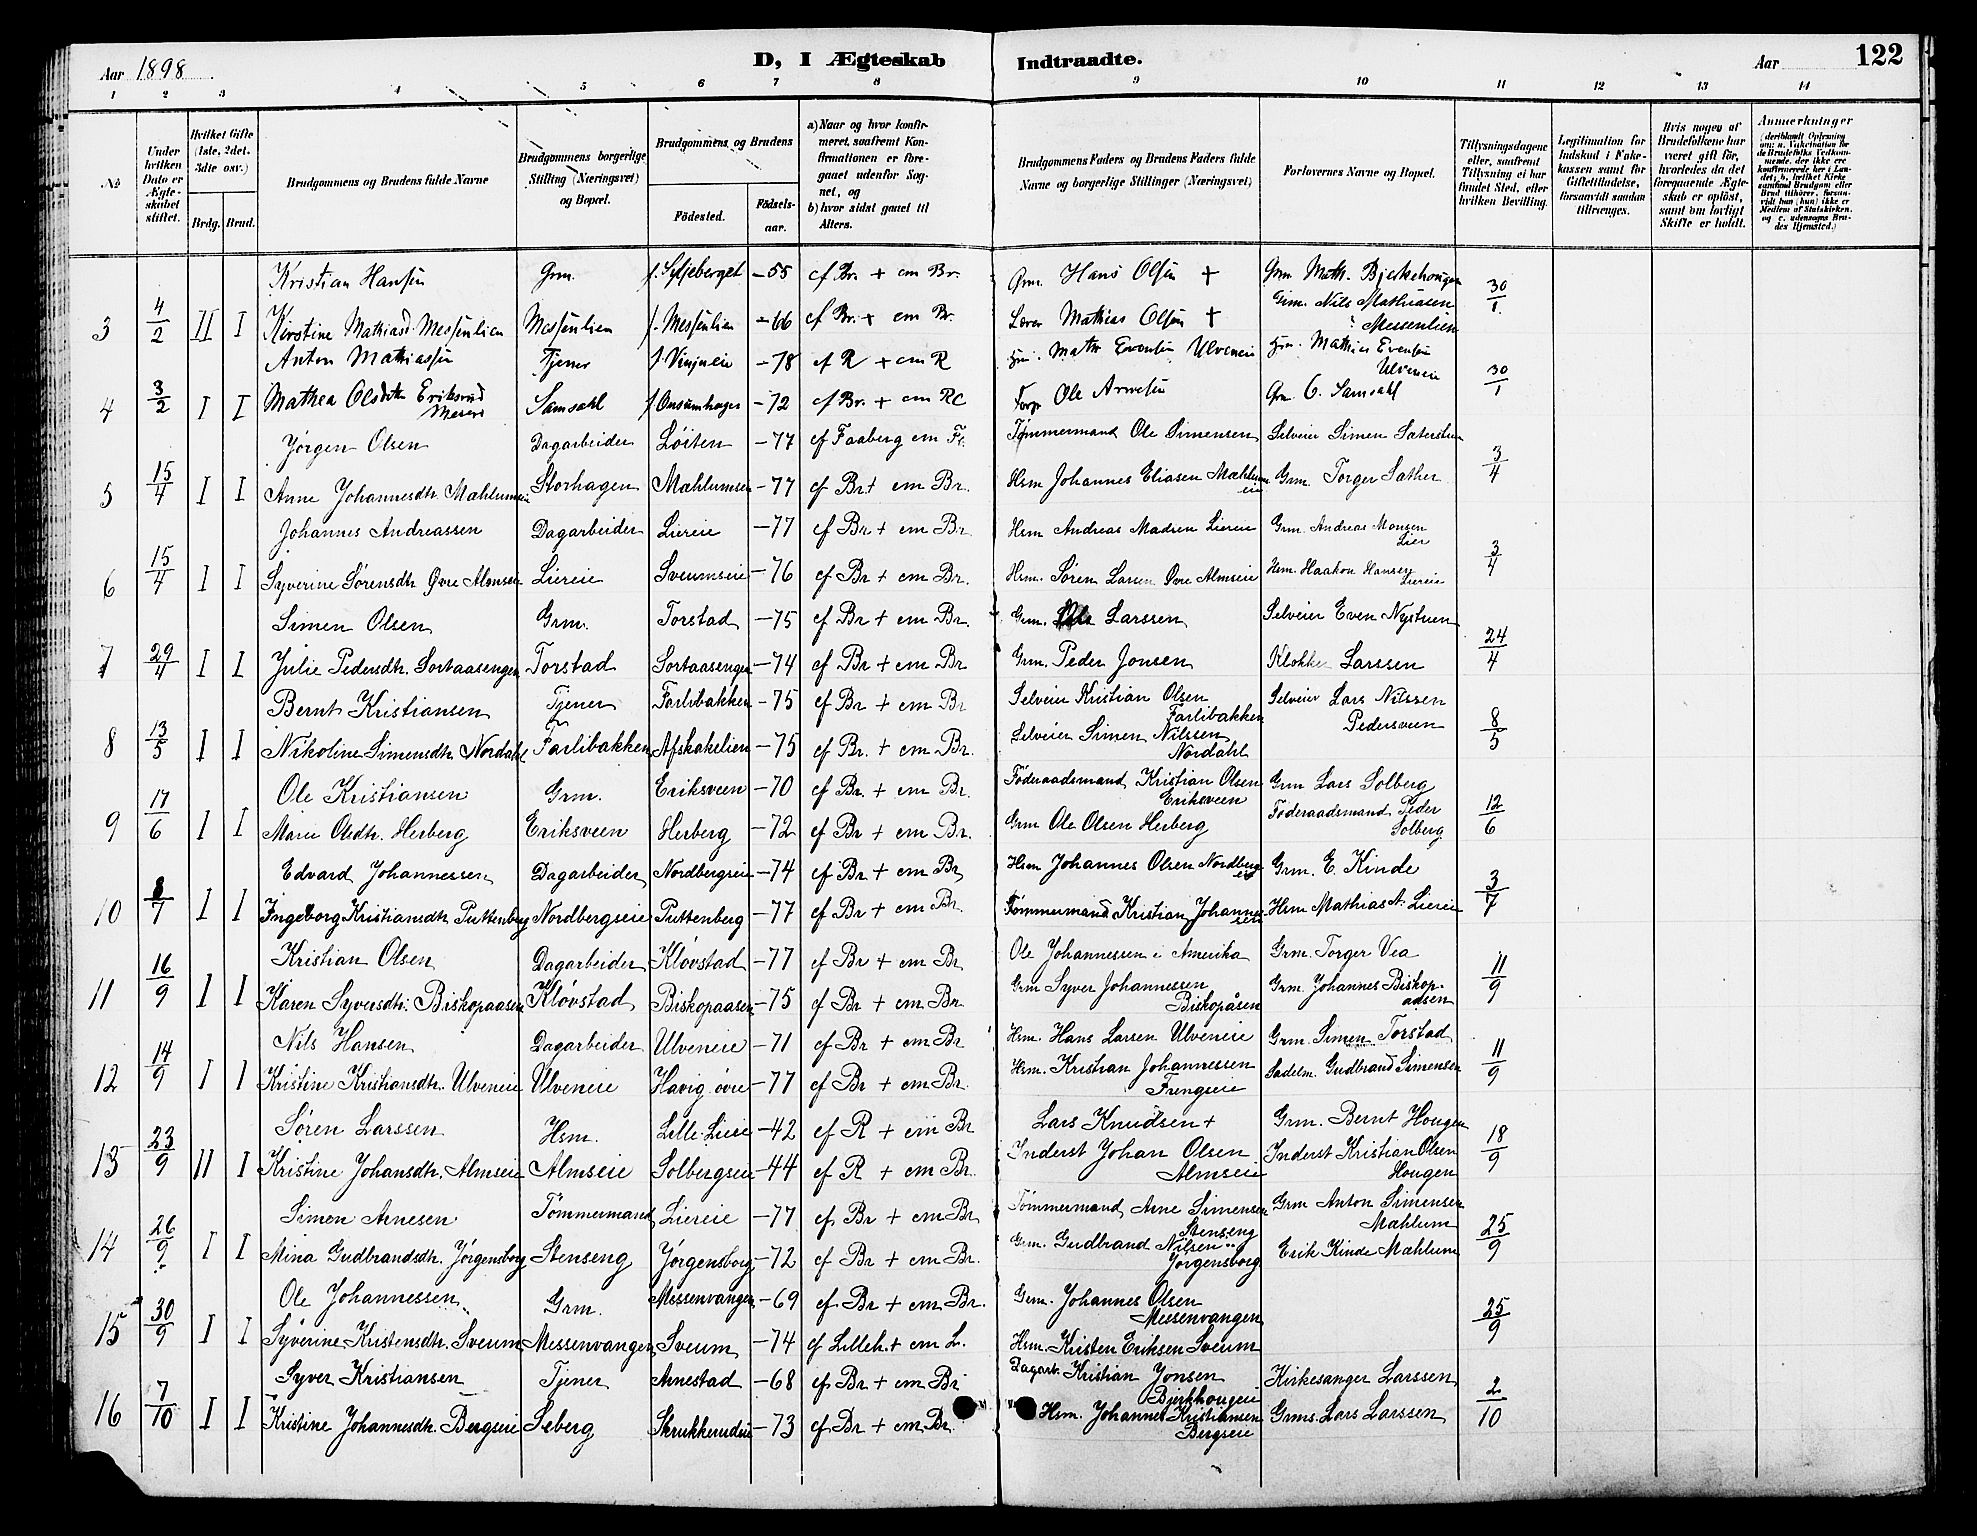 Aar 1898
D, I Ægteskab Indtraadte.
Aar
122
1 2 3 4 5 6 7 8 9 10 11 12 13 14
No
Under hvilken Dato er Ægteskabet stiftet.
Hvilket Gifte (1ste, 2det, 3die osv.)
Brdg. Brud.
Brudgommens og Brudens fulde Navne
Brudgommens borgerlige Stilling (Næringsvei) og Bopæl.
Brudgommens og Brudens
Fødested.
Fødselsaar.
a) Naar og hvor konfirmeret, saafremt Konfirmationen er foregaaet udenfor Sognet, og
b) hvor sidst gaaet til Alters.
Brudgommens Faders og Brudens Faders fulde Navne og borgerlige Stillinger (Næringsvei)
Forlovernes Navne og Bopæl.
Tillysningsdagene eller, saafremt Tillysning ei har fundet Sted, efter hvilken Bevilling.
Legitimation for Indskud i Enkekassen samt for Giftetilladelse, forsaavidt saadan tiltrænges.
Hvis nogen af Brudefolkene har været gift før, hvorledes da det foregaaende Ægteskab er opløst, samt om lovligt Skifte er holdt.
Anmerkninger
Kristian Hansen Grm. f. Sytjeberget -55 cf Br. + cm Br. Grm. Hans Olsen + Grm Math. Bjerkehougen
3 4/2 II I Kirstine Mathiasd. Messenlien Messenlien f. Messenlien -66 cf Br. + cm Br. Lærer Mathias Olsen + Grm. Nils Mathiasen Messenlien 30/1
Anton Mathiassen Tjener f. Vinjueie -78 cf R + cm R Hm. Math Evensen Ulveneie Hm. Mathias Evensen Ulveneie
4 3/2 I I Mathea Olsdtr Eriksrud Samsahl -72 cf Br. + cm R Ole Arnesen Grm O. Samsahl 30/1
Jørgen Olsen Dagarbeider Løiten -77 cf Faaberg cm F. Tømmermand Ole Simensen Selveier Simen Sæterstuen
5 15/4 I I Anne Johannesdtr. Mæhlumeie Storhagen Mæhlumseie -77 cf Br + cm Br. Hsm Johannes Eliasen Mæhlumeie Grm. Torger Sæther 3/4
Johannes Andreassen Dagarbeider Liereie -77 cf Br + cm Br. Hsm Andreas Madsen Liereie Grm. Andreas Monsen Lier
6 15/4 I I Syverine Sørensdtr Øvre Almseie Liereie Sveumseie -76 cf Br + cm Br. Hsm. Søren Larsen Øvre Almseie Hsm. Haakon Hansen Liereie 3/4
Simen Olsen Grm. Torstad -75 cf Br + cm Br. Grm. Ole Larssen Selveier Even Nystuen
7 29/4 I I Julie Pedersdtr. Sortaasengen Torstad Sortaasengen -74 cf Br + cm Br Grm. Peder Jonsen Klokker Larssen 24/4
Bernt Kristiansen Tjener Farlibakken -75 cf Br + cm Br Selveier Kristian Olsen Farlibakken Selveier Lars Nilssen Pedersveen
8 13/5 I I Nikoline Simensdtr Nordahl Farlibakken Afskakelien -75 cf Br. + cm Br. Selveier Simen Nilssen Nordahl 8/5
Ole Kristiansen Grm. Eriksveen -70 cf Br. + cm Br. Føderaadsmand Kristian Olsen Eriksveen Grm Lars Solberg
9 17/6 I I Marie Olsdtr. Herberg Eriksveen Herberg -72 cf Br + cm Br. Grm Ole Olsen Herberg Føderaadsmand Peder Solberg 12/6
Edvard Johannessen Dagarbeider Nordbergseie -74 cf Br + cm Br. Hsm Johannes Olsen Nordbergeie Grm. E. Kinde
10 8/7 I I Ingeborg Kristiansdtr Puttenberg Nordbergseie Puttenberg -77 cf Br + cm Br. Tømmermand Kristian Johannessen Hsm Mathias A. Liereie 3/7
Kristian Olsen Dagarbeider Kløvstad -77 cf Br + cm Br. Ole Johannessen i Amerika Grm. Torger Vea
11 16/9 I I Karen Syversdtr. Biskopaasen Kløvstad Biskopaasen -75 cf Br + cm Br. Grm Syver Johannessen Biskopåsen Grm. Johannes Biskopaasen 11/9
Nils Hansen Dagarbeider Ulveneie -71 cf Br + cm Br Hsm. Hans Larsen Ulveneie Grm. Simen Torstad
12 14/9 I I Kristine Kristiansdtr. Ulveneie Ulveneie Havig øvre -77 cf Br + cm Br. Hsm. Kristian Johannessen Frengseie Sadelm. Gudbrand Simensen 11/9
Søren Larssen Hsm. Lille-Liere -42 cf R + cm Br Lars Knudsen + Grm. Bernt Hougen
13 23/9 II I Kristine Johansdtr. Almseie Almseie Solbergseie -44 cf R + cm Br. Inderst Johan Olsen Almseie Inderst Kristian Olsen Hougen 18/9
Simen Arnesen Tømmermand Liereie -77 cf Br + cm Br Tømmermand Arne Simensen Stenseng Grm Anton Simensen Mæhlum
14 26/9 I I Mina Gudbrandsdtr. Jørgensborg Stenseng Jørgensborg -72 cf Br + cm Br. Grm. Gudbrand Nilsen Jørgensborg Erik Kinde Mæhlum 25/9
Ole Johannessen Grm. Messenvangen -69 cf Br + cm Br. Grm. Johannes Olsen Messenvangen
15 30/9 I I Syverine Kristensdtr. Sveum Messenvangen Sveum -74 cf Lilleh. + cm L. Hsm. Kristen Eriksen Sveum 25/9
Syver Kristiansen Tjener Arnestad -68 cf Br + cm Br Dagarb. Kristian Jonsen Bjerkhougeie Kirkesanger Larssen
16 7/10 I I Kristine Johannesdtr. Bergseie Seberg Skrukkerudeie -73 cf Br + cm Br Hsm. Johannes Kristiansen Bergseie Grms. Lars Larssen 2/10